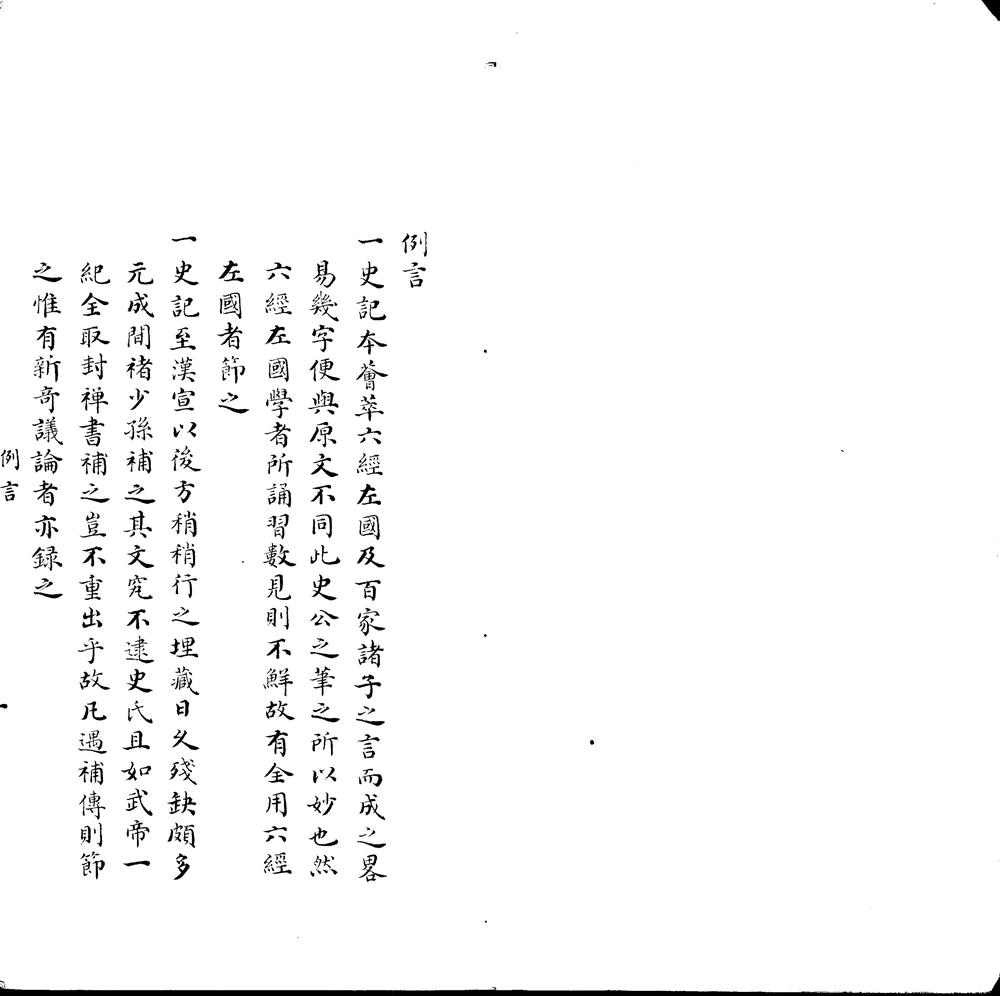 例言
一史記本薈萃六經左國及百家諸子之言而成之畧
易幾字便與原文不同此史公之筆之所以妙也然
六經左國學者所誦習數見則不鮮故有全用六經
左國者節之
一史記至漢宣以後方稍稍行之埋藏日久殘缺頗多
元成間褚少孫補之其文究不逮史氏且如武帝一
紀全取封禅書補之豈不重出乎故凡遇補傳則節
之惟有新奇議論者亦録之
例言